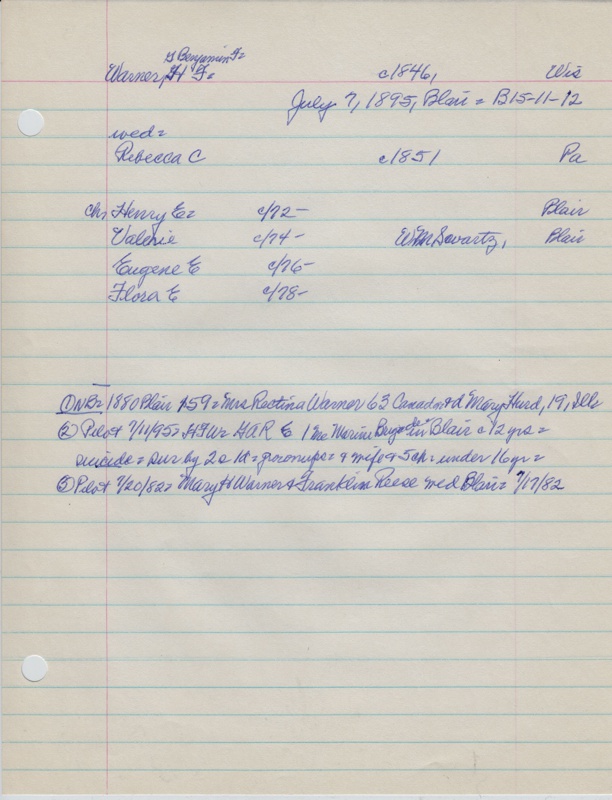 & Benjamin F=
Warner, H F= c1846, Wis
July 7, 1895, Blair = B15-11-12
wed=
Rebecca C c1851 Pa
ch, Henry E= c/72- Blair
Valerie c/74- Wm Swartz, Blair
Eugene E c/76-
Flora E c/78-
① NB= 1880 Blair 59= Mrs Rectina Warner 63 Canada + d "Mary Hurd, 19, Ills
② Pilot 7/11/95= HFW= GAR E 1 Marine Brigade" in Blair c12 yrs=
suicide= sur by 2s 1d= grownups= + wife + 5 ch. under 16 yr=
③ Pilot 7/20/82= "Mary H Warner + Franklin Reese wed Blair= 7/17/82